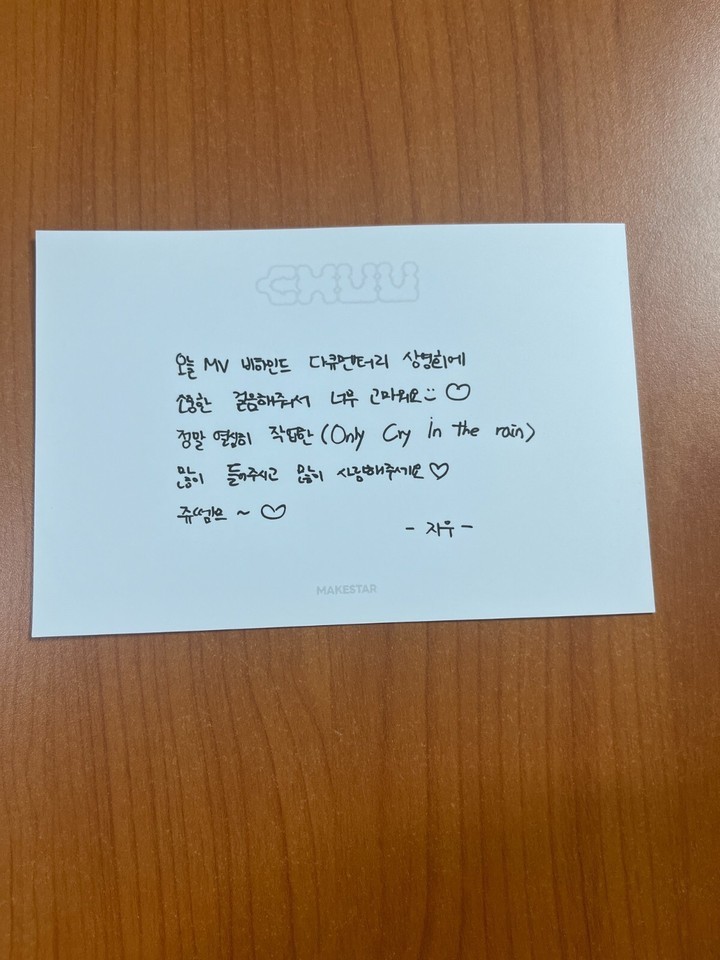 CHUU
오늘 MV 비하인드 다큐멘터리 상영회에
소중한 걸음해줘서 너무 고마워요 :) ♡
정말 열심히 작업한 (Only Cry in the rain)
많이 들어주시고 많이 사랑해주세요 ♡
쮸쎔쁘 ~ ♡
- 지우 -
MAKESTAR